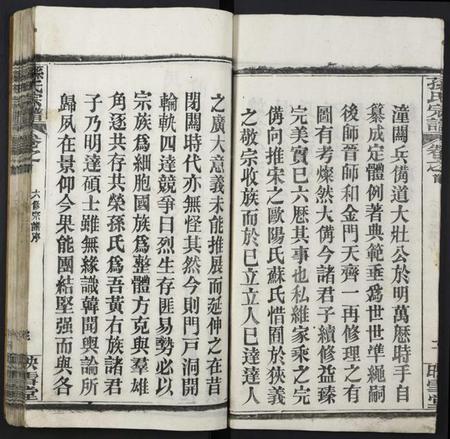 潼關兵備道大壯公於明萬厯時手自
纂成定體例著典範垂爲世世準繩嗣
後師晉師和金門天齊一再修理之有
圖有考燦然大備今諸君子續修益臻
完美實已六厯其事也私維家乘之完
備向推宋之歐陽氏蘇氏惜囿於狹義
之敬宗收族而於已立立人已達達人
之廣大意義未能推展而延伸之在昔
閉關時代亦無怪其然今則門戸洞開
輪軌四達競爭日烈生存匪易勢必以
宗族爲細胞國族爲整體方克與羣雄
角逐共存共榮孫氏爲吾黃右族諸君
子乃明達碩士雖無緣識韓聞輿論所
歸夙在景仰今果能團結堅强而與各
孫氏宗譜 卷之首
孫氏宗譜 卷之
六修宗譜序
映雪堂
映雪堂